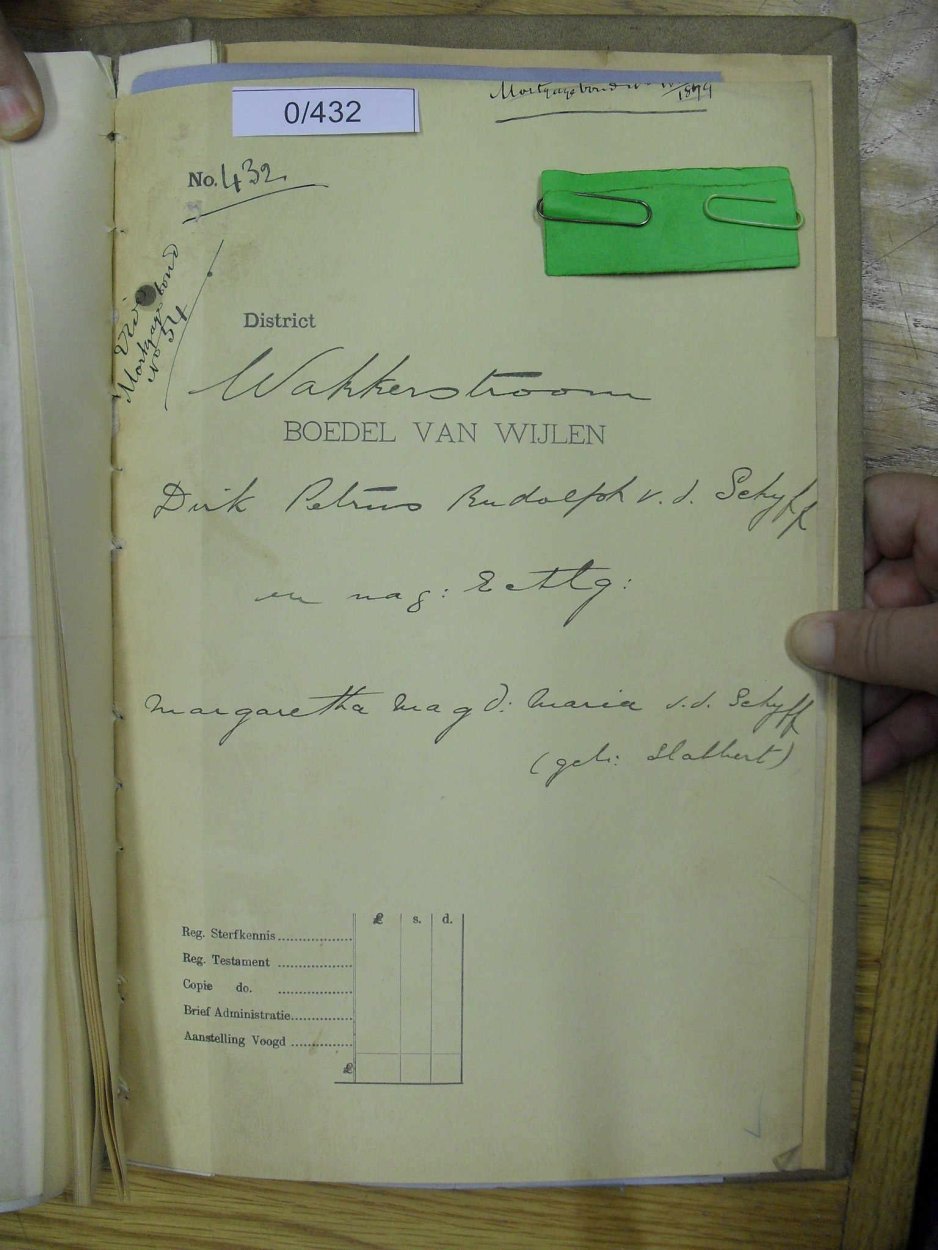 Mortgagebond No
1899
0/432
No. 432
Vide
Mortgage bond
No 54
District
Wakkerstroom
BOEDEL VAN WIJLEN
Dirk Petrus Rudolph v. d. Schyff
en nag: Echtg:
Margaretha Magd: Maria v. d. Schyff
(geb: Slabbert)
£ s. d.
Reg. Sterfkennis
Reg. Testament
Copie do.
Brief Administratie
Aanstelling Voogd
£